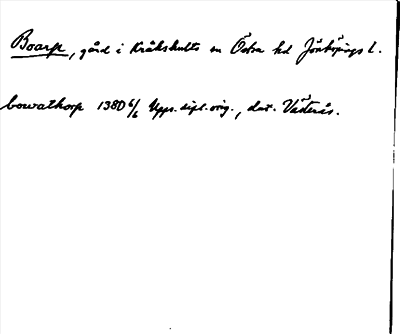 Boarp, gård i Kråkshults sn Östra hd Jönköpings l.
bowathorp 1380 6/6 Upps. dipl. orig., dat. Västerås.